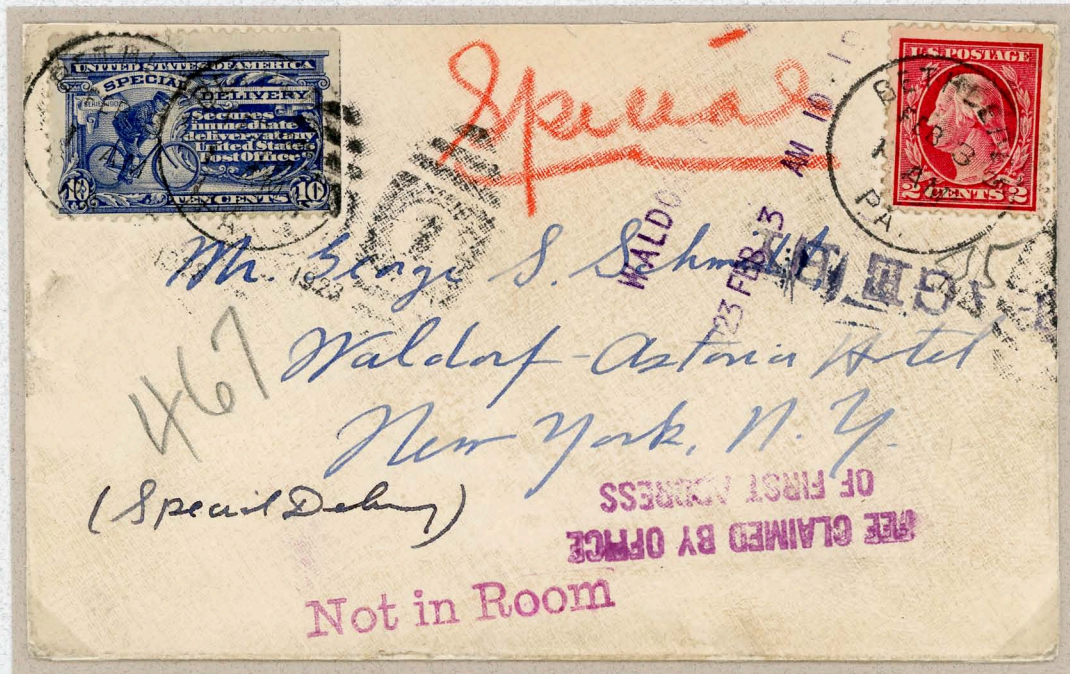 UNITED STATES OF AMERICA
SPECIAL DELIVERY
SERIES 1902
Secures
immediate
delivery at any
United States
Post Office
10 TEN CENTS 10
Special
U.S. POSTAGE
2 CENTS 2
BETHLEHEM
FEB 3
AM
PA.
WALDO
'23 FEB 3 AM 10
1
1923
Mr. George S. Schmidt
Waldorf-Astoria Hotel
New York, N. Y.
467
(Special Delivery)
FEE CLAIMED BY OFFICE
OF FIRST ADDRESS
Not in Room